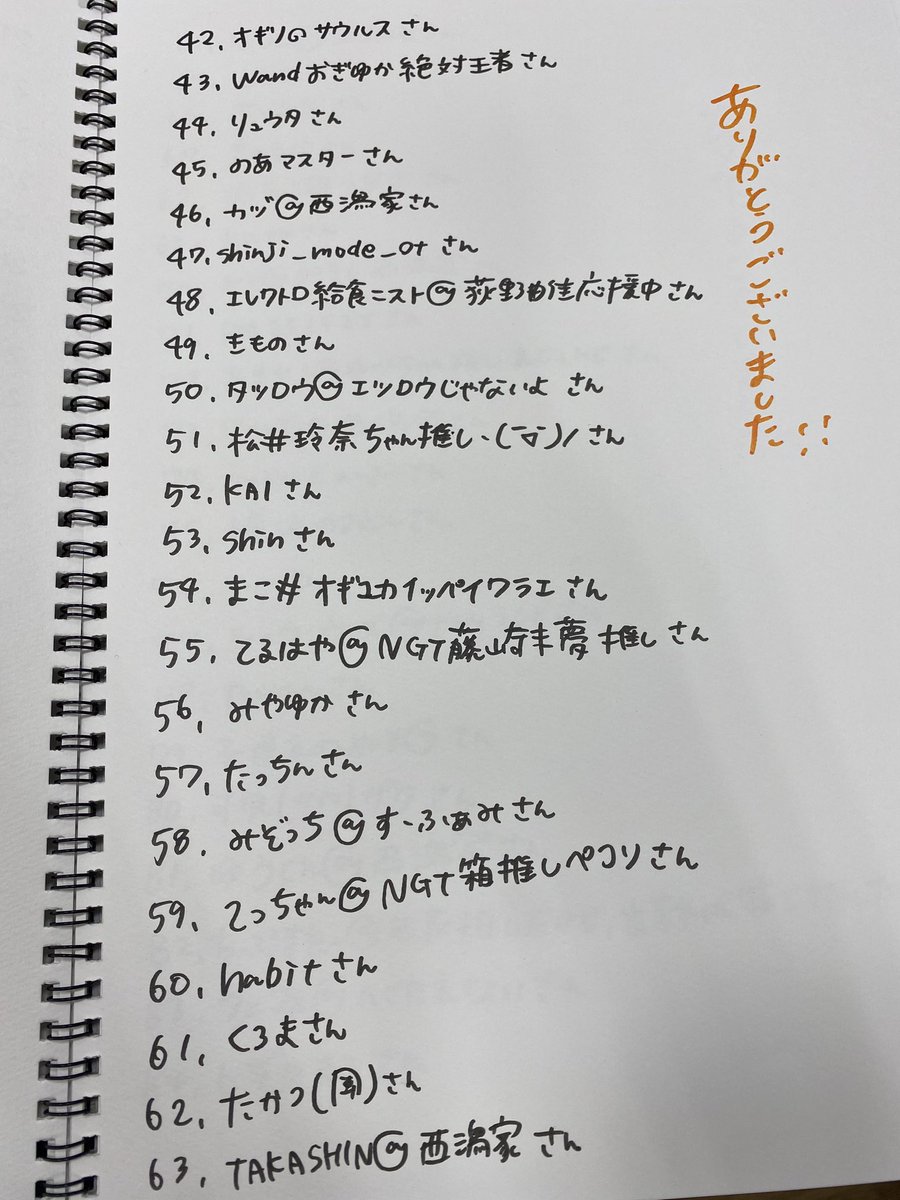 42. オギリのサウルスさん
43. wandおぎゆか絶対王者さん
44. リュウタさん
45. のあマスターさん
46. カヅ@西潟家さん
47. shinji_mode_otさん
48. エレクトロ給食ニスト@荻野由佳応援中さん
49. きものさん
50. タツロウ@エツロウじゃないよさん
51. 松井玲奈ちゃん推しヽ(▽)ノさん
52. KAIさん
53. shinさん
54. まこ#オギユカイッパイワラエさん
55. てるはや@NGT藤崎未夢推しさん
56. みやゆかさん
57. たっちんさん
58. みぞっち@すーふぁみさん
59. てっちゃん@NGT箱推しペコリさん
60. habitさん
61. くろまさん
62. たかつ()さん
63. TAKASHIN@西潟家さん
ありがとうございました!!